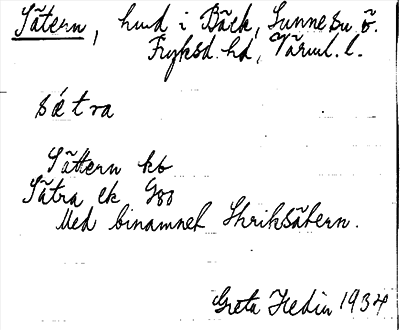 Sätern, hmd i Bäck, Sunne su ö.
Fryksd. hd, Värml. l.
sǽtra
Sättern kb
Sätra ek G80
Med binamnet Skriksätern.
Greta Hedin 1934